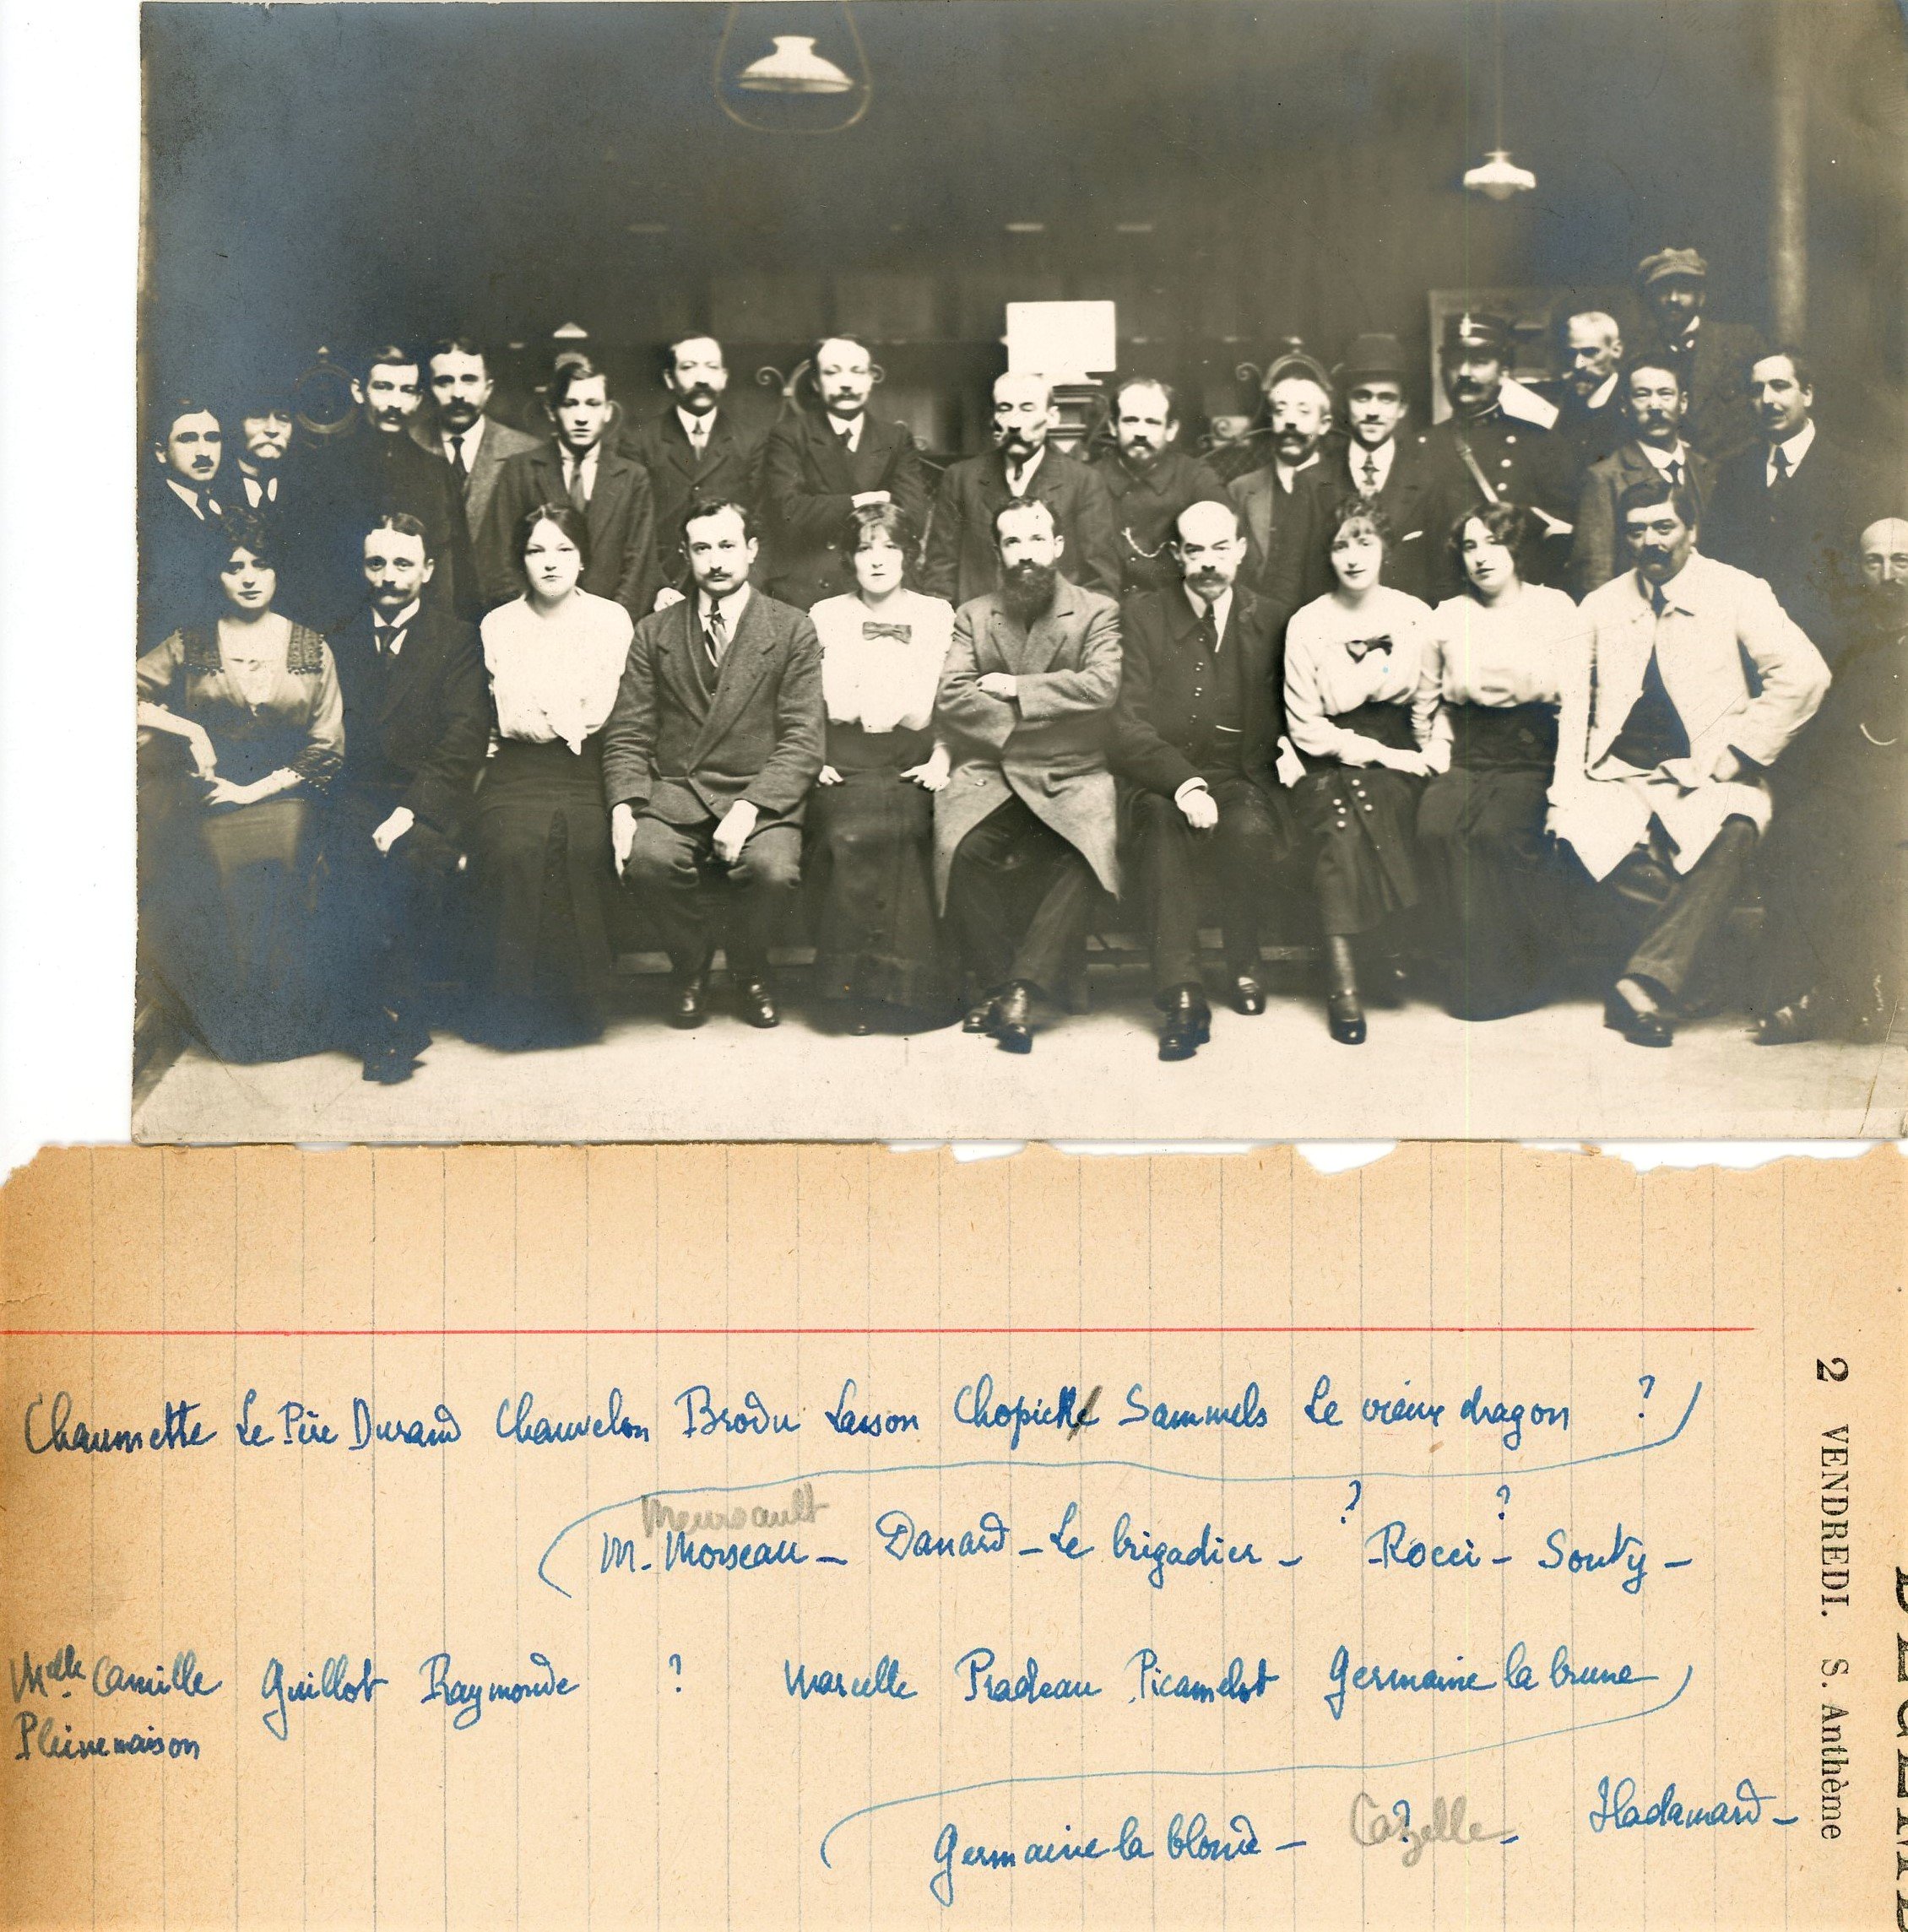 Chaumette Le Père Durand Chauvelon Brodu Lanson Chopick Sammels Le vieux dragon ?
Meursault ? ?
M. Morseau - Danard - Le brigadier - Rocci - Souty -
Melle Camille Guillot Raymonde ? Marcelle Pradeau Picamelot Germaine la brune
Pleinemaison
Germaine la blonde - Cazelle ? - Hadamard -
2 VENDREDI. S. Anthème